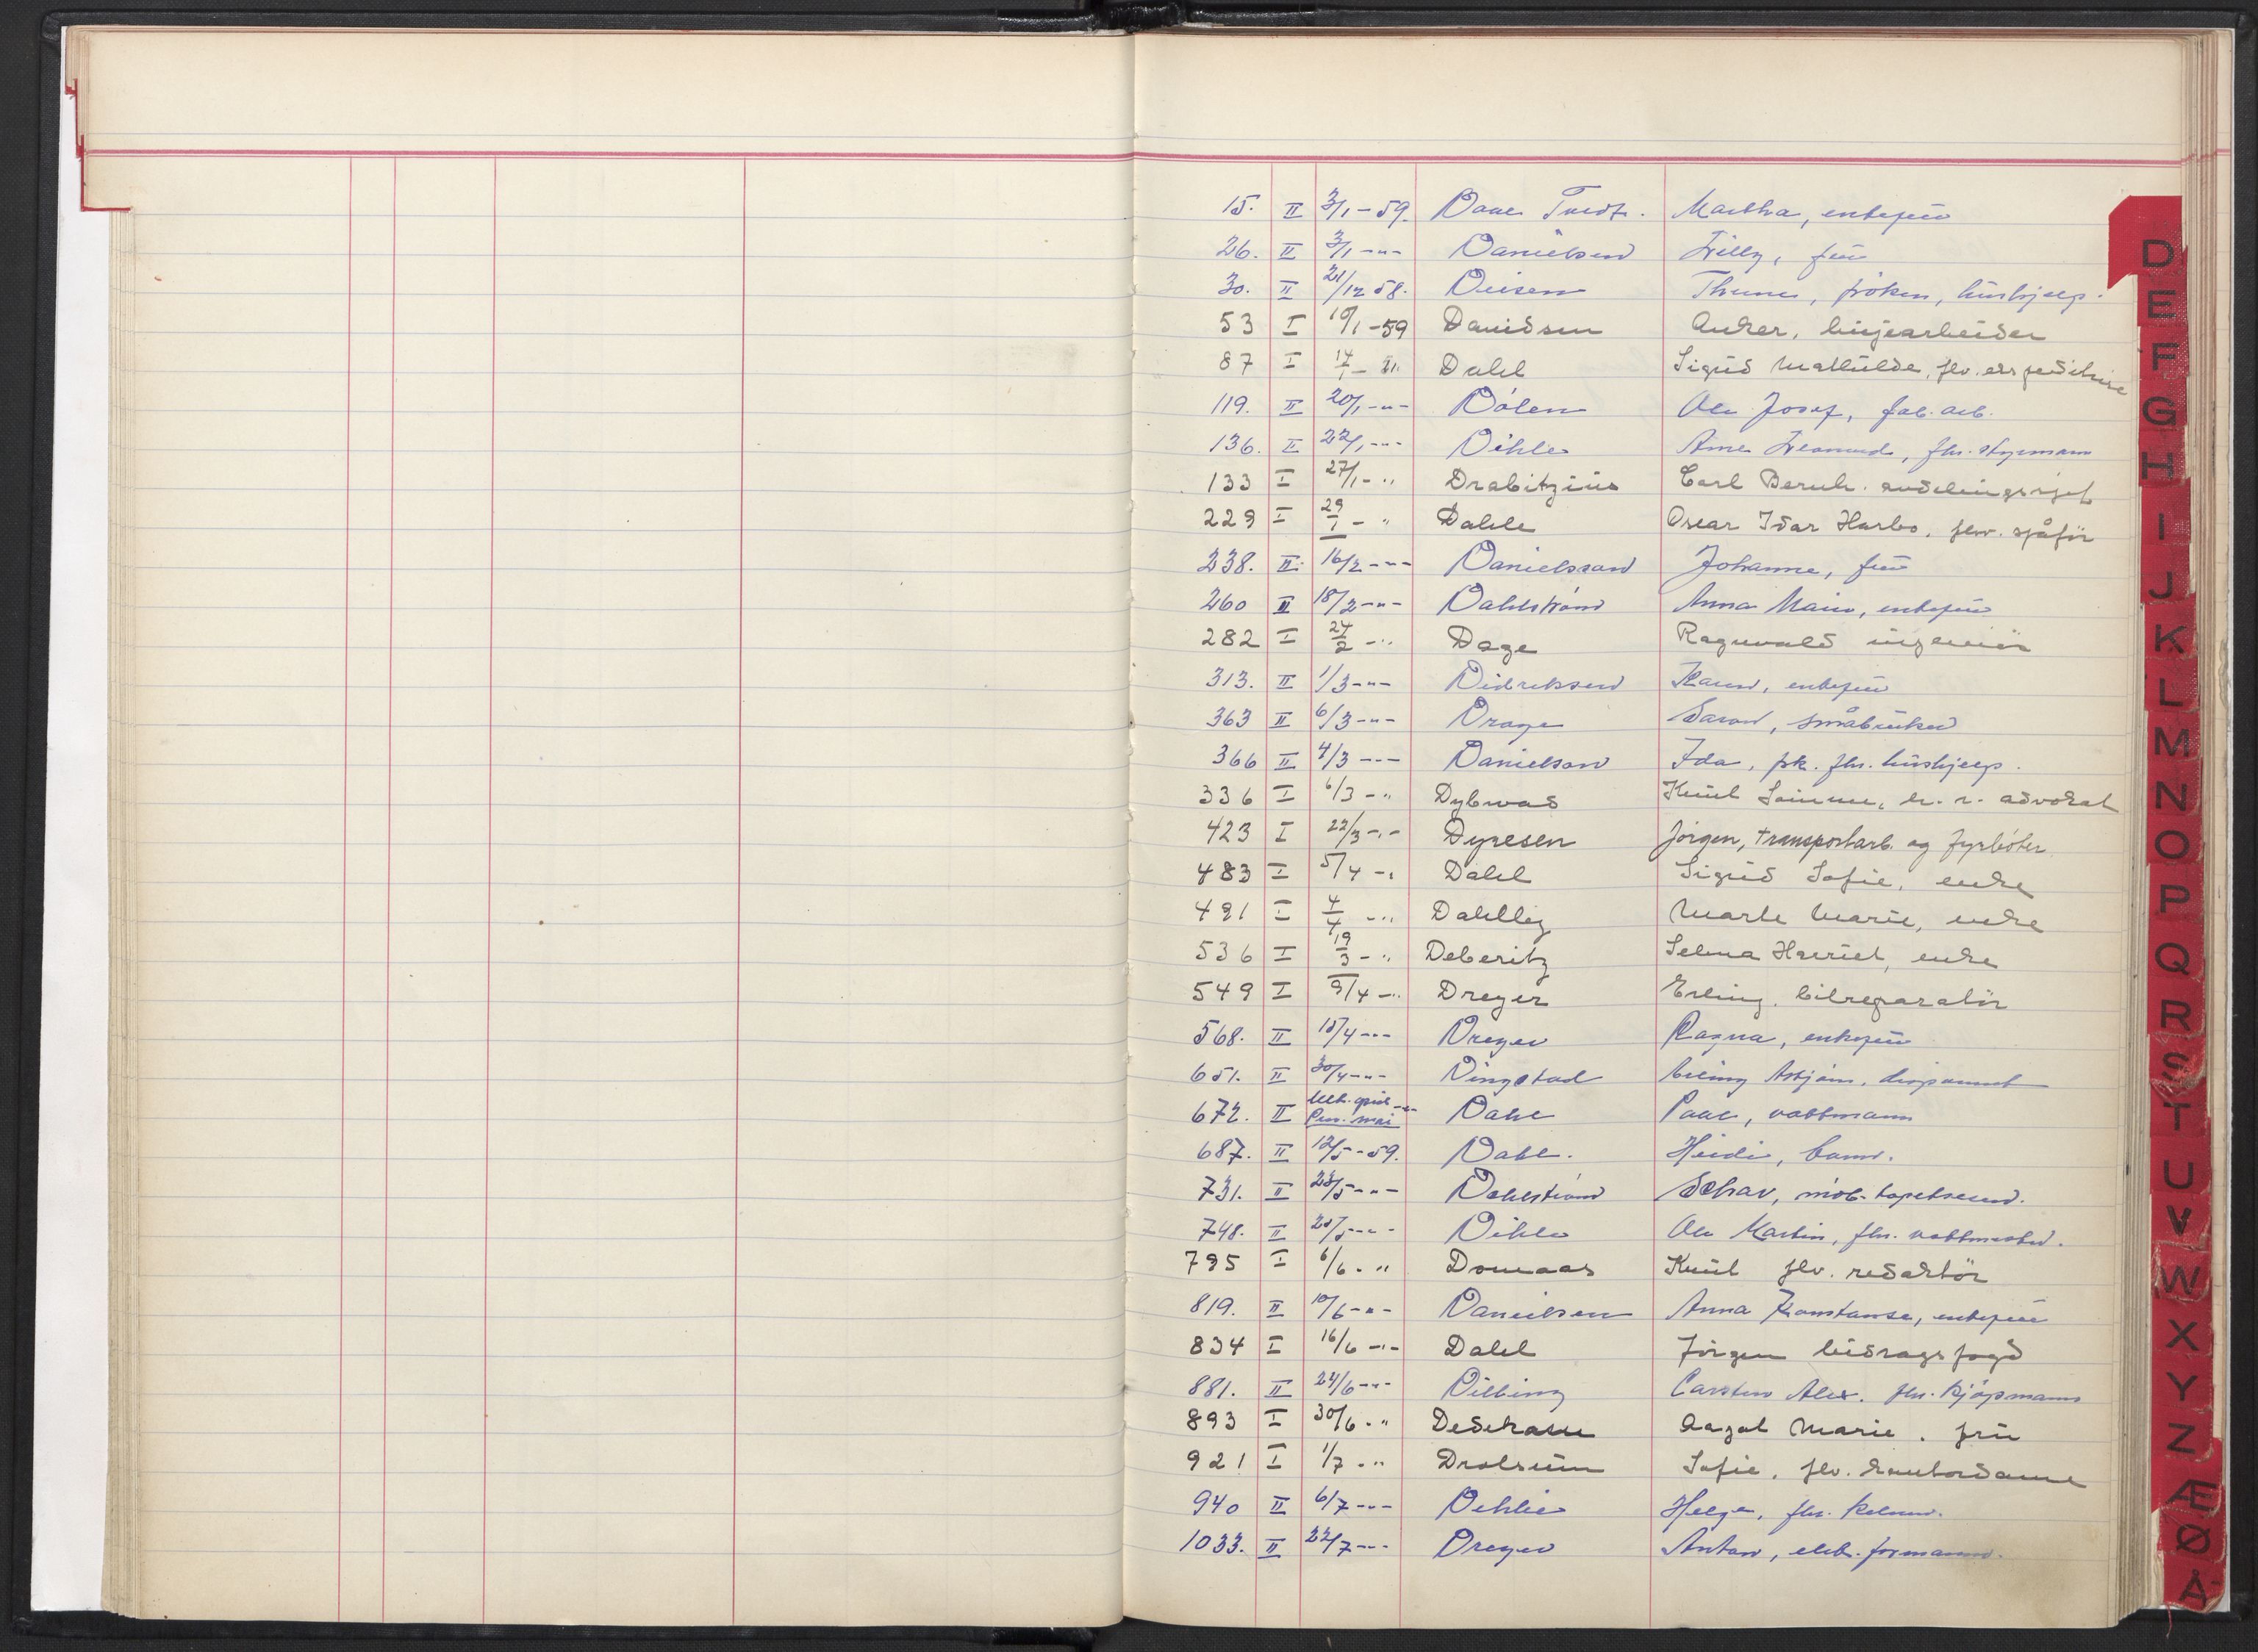 15. II 3/1-59. Daae Tvedt. Martha, enkefrü
26. II 3/1 -"- Danielsen Willy, frü
30. II 21/12 58. Deisen Thrine, fröken, hüshjelp.
53 I 10/1-59 Davidsen Anker, linjearbeider
87 I 14/1 - 59. Dahl Sigrid Mathilde, flv. ekspeditrise
119. II 20/1 -"- Dólen Ole Josef, fab. arb.
136. II 22/1 -"- Dihle Arne Wermund, fhv. styrmann
133 I 27/1 - " Drabitzius Carl Bernh. avdelingssjef
229 I 29/1 - " Dahle Oscar Idar Harbo, flv. sjåför
238. II 16/2 -"- Danielsen Johanne, frü
260 II 18/2 -"- Dahlstrøm Anna Marie, enkefrü
282 I 24/2 - " Dage Ragnvald ingeniör
313. II 1/3 -"- Didriksen Karen, enkefrü
363 II 6/3 -"- Drage Søren, småbrüker
366 II 4/3 -"- Danielsen Ida, frk. fhv. hüshjelp.
336 I 6/3 - " Dybwad Knüt h. r. advokat
423 I 22/3 -"- Dyresen Jörgen, transportarb. og fyrböter
483 I 5/4 - " Dahl Sigrid Sofie, enke
491 I 4/4 - " Dahlby Marte Marie, enke
536 I 19/3 - " Deberitz Selma Harriet, enke
549 I 9/4 - " Dreyer Erling, bilreparatör
568. II 15/4 -"- Dreyer Ragna, enkefrü
651. II 30/4 -"- Dingstad Erling Asbjørn, disponent
672. II Ult. april -"- Prim. mai Dahl Paul, vaktmann
687. II 12/5-59. Dahl. Heidi, barn.
731. II 23/5 -"- Dahlstrøm Oskar, möb. tapetserer.
748. II 25/5 -"- Dihle Ole Martin, fhv. vaktmester.
795 I 6/6 - " Domaas Knüt flv. redaktör
819. II 10/6 -"- Danielsen Anna Konstanse, enkefrü
834 I 16/6 -"- Dahl Jörgen bidragsfogd
881. II 24/6 -"- Dilling Carsten Alex. fhv. kjøpmann
893 I 30/6 - " Dedekam Aagot Marie, frü
921 I 1/7 - " Drolsum Sofie, flv. kontordame
940 II 6/7 -"- Dehlie Helge, fhv. kelner.
1033. II 22/7 -"- Dreyer Anton, elek. formann.
D
E
F
G
H
I
J
K
L
M
N
O
P
Q
R
S
T
U
V
W
X
Y
Z
Æ
Ø
Å